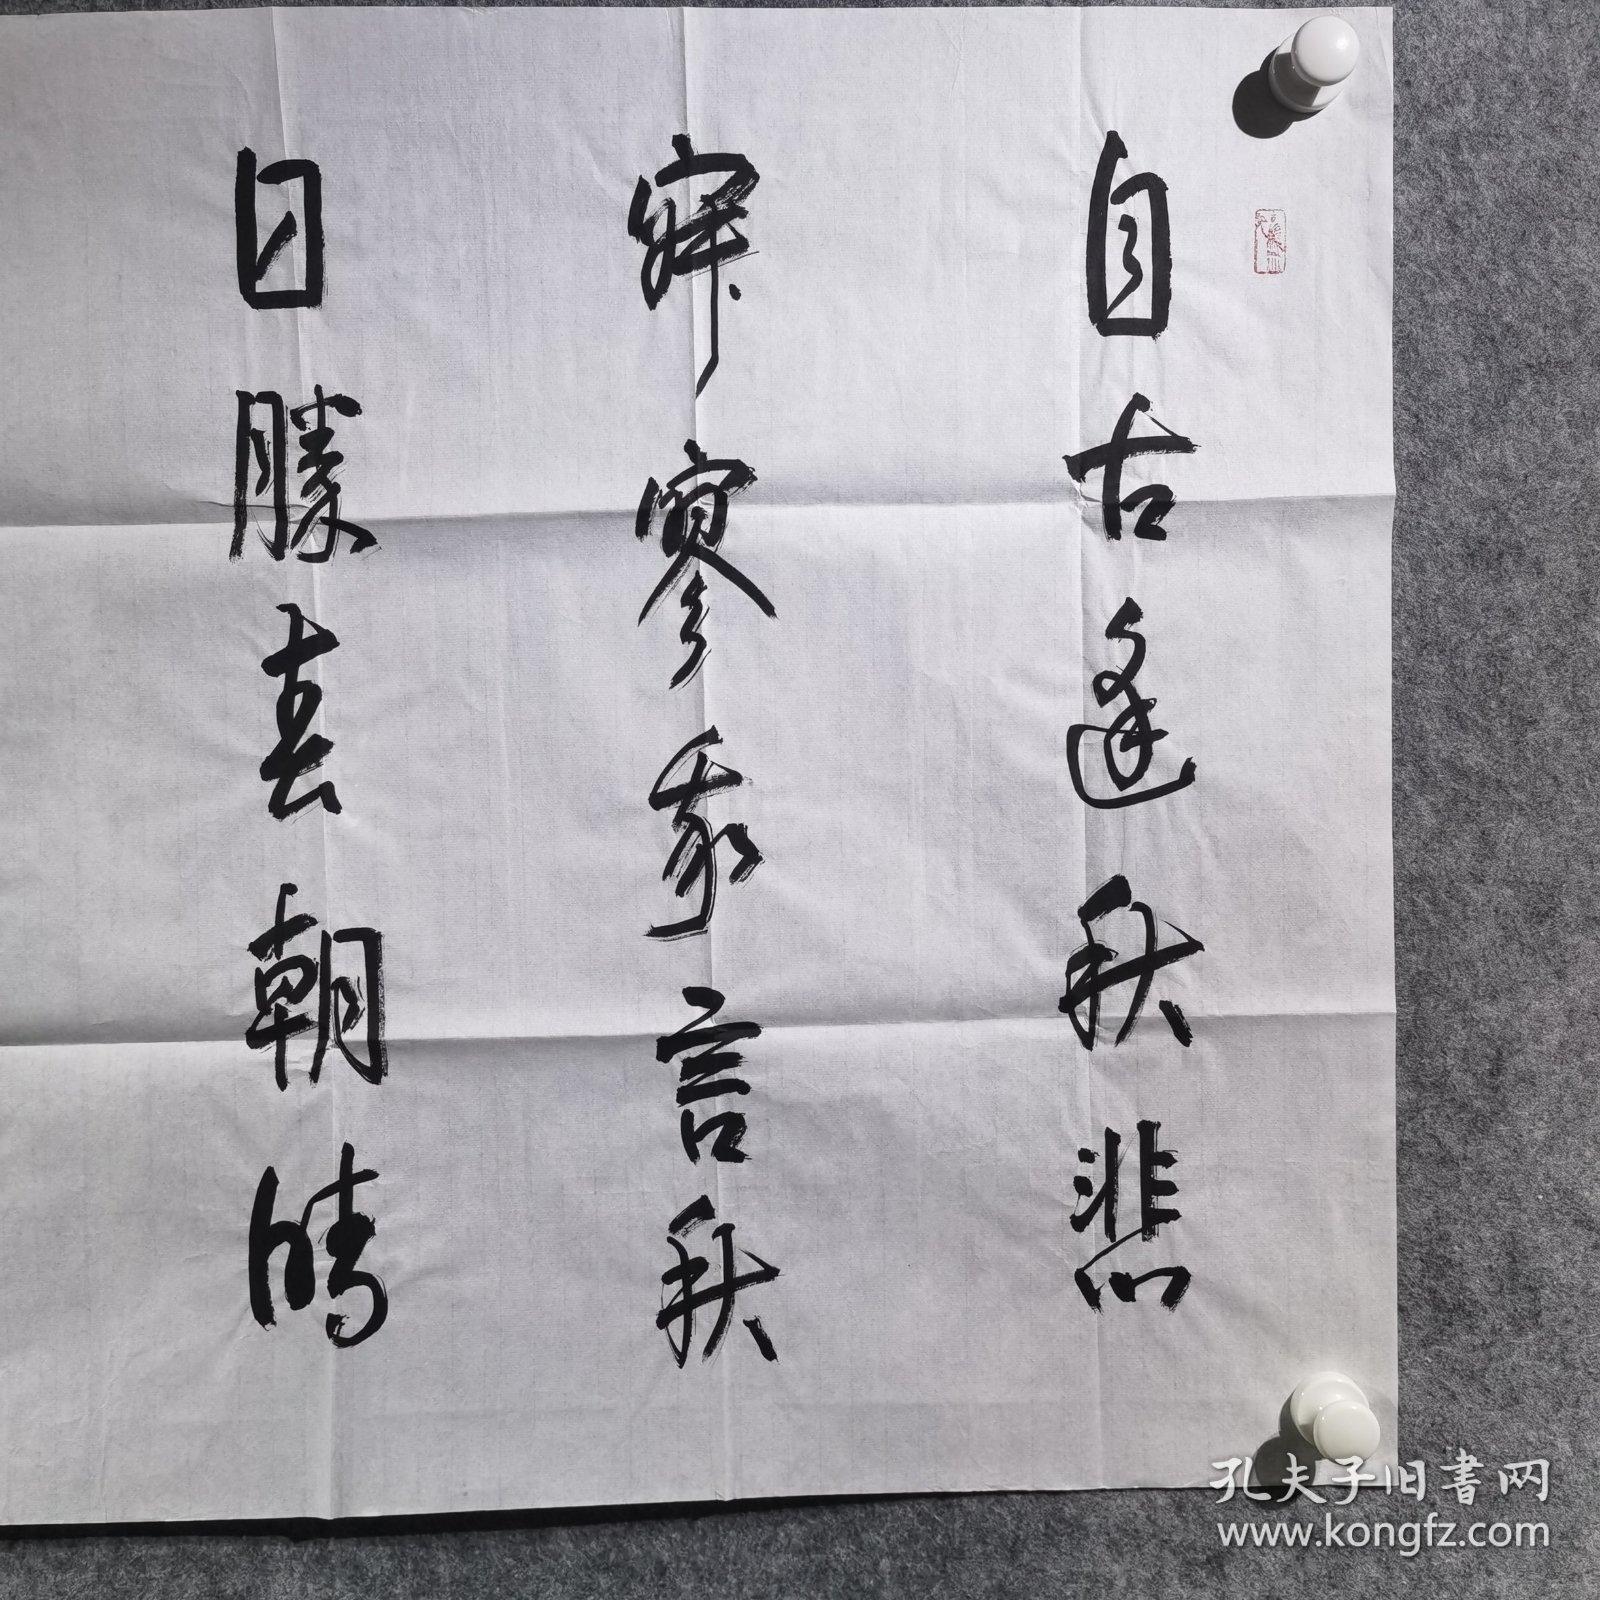 自古逢秋悲
寂寥我言秋
日勝春朝晴
孔夫子旧書网
www.kongfz.com